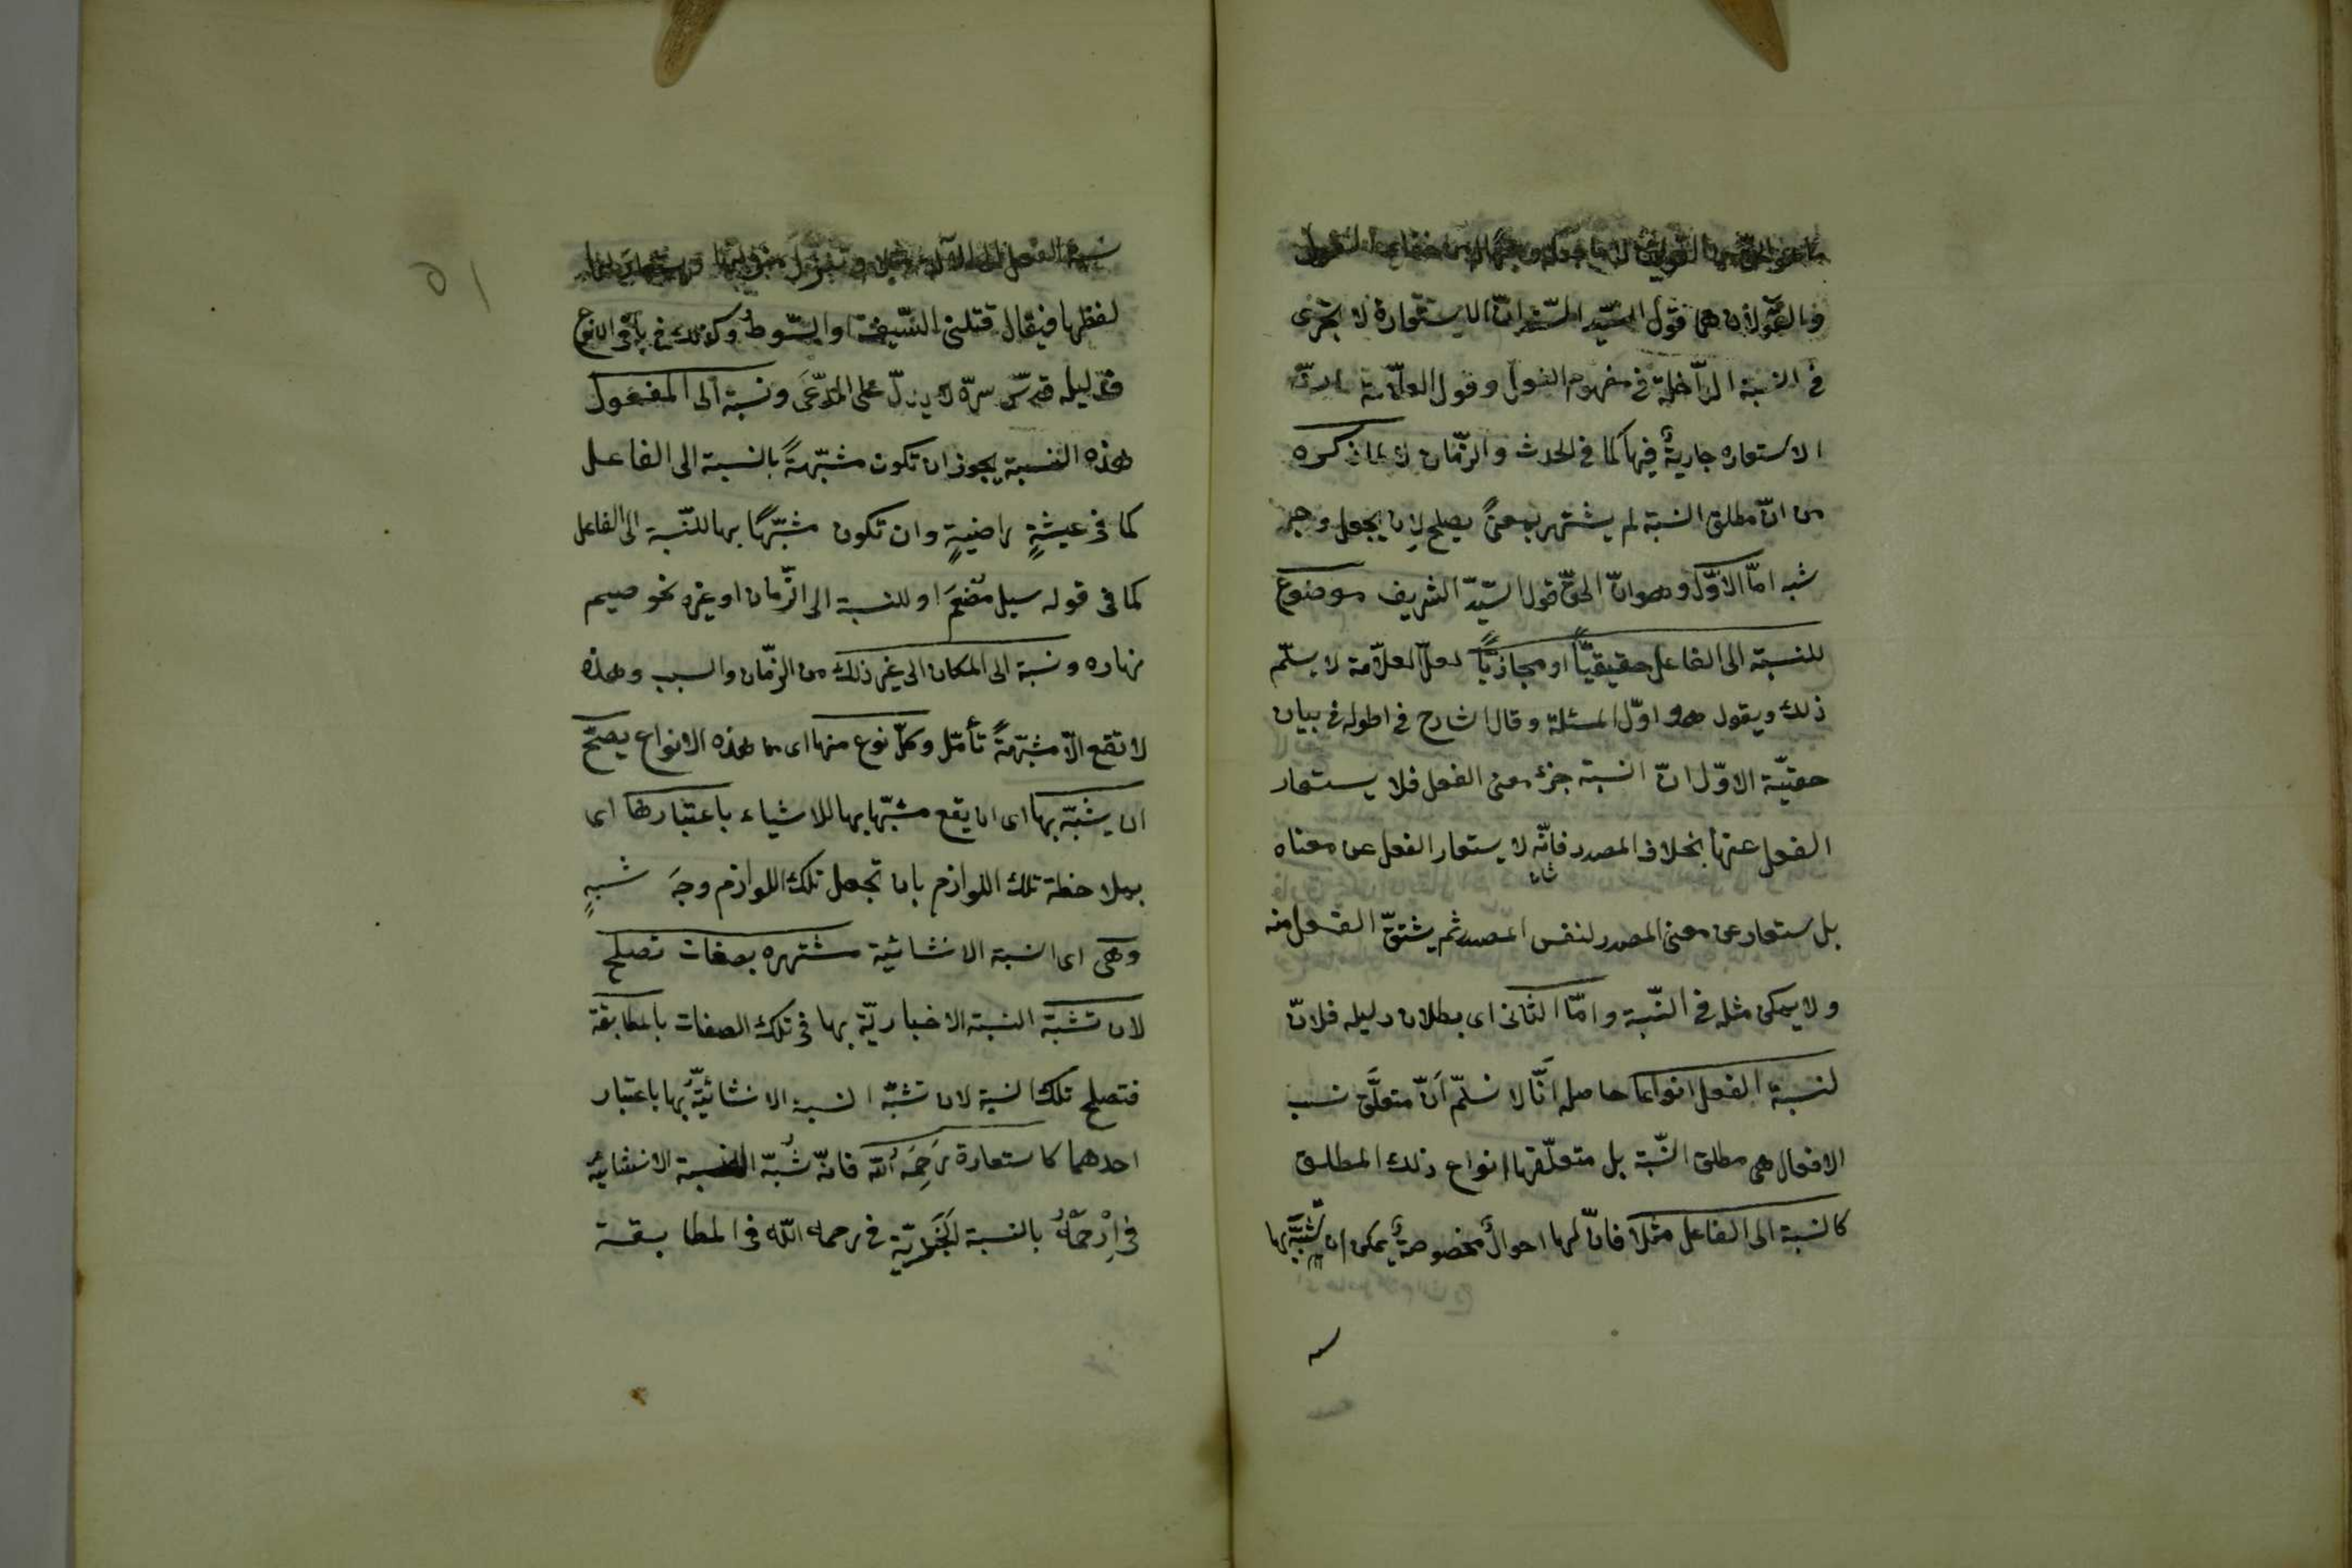 فالقولان هما قول السّيّد السّند انّ الاستعارة لا تجرى
فى النسبة الدّاخلة فى مفهوم الفعل وقول العلّامة انّ
الاستعاره جاريةٌ فيها كما فى الحدث والزّمان لا لما ذكره
من انّ مطلق النسبة لم يشتهر بمعنًى يصلح لان يجعل وجه
شبه امّا الاوّل وهو انّ الحقّ قول السّيّد الشريف موضوع
للنسبة الى الفاعل حقيقيّاً او مجازيّاً لعلّ العلّامة لا يسلّم
ذلك ويقول هو اوّل المسئلة وقال الشارح فى اطوله فى بيان
حقيّة الاوّل انّ النسبة جزء معنى الفعل فلا يستعار
الفعل عنها بخلاف المصدر فانّه لا يستعار الفعل عن معناه
بل يستعار عن معنى المصدر لنفس المصدر ثم يشتقّ الفعل منه
ولا يمكن مثله فى النّسبة وامّا الثانى اى بطلان دليله فلانّ
لنسبة الفعل انواعا حاصله انّا لا نسلّم انّ متعلَّق نسب
الافعال هى مطلق النّسبة بل متعلّقها انواع ذلك المطلق
كالنسبة الى الفاعل مثلا فانّ لها احوالٌ مخصوصةٌ يمكن ان يشبَّه بها
لفظها فيقال قتلنى السّيف او السّوط وكذلك فى باقى الانواع
فدليله قدّس سرّه لا يدلّ على المدّعَى ونسبة الى المفعول
هذه النسبة يجوز ان تكون مشبّهةً بالنسبة الى الفاعل
كما فى عيشةٍ راضيةٍ وان تكون مشبّهًا بها للنّسبة الى الفاعل
كما فى قوله سيل مفعَم او للنسبة الى الزّمان او غيره نحو صيم
نهاره ونسبة الى المكان الى غير ذلك من الزّمان والسبب وهذه
لا تقع الّا مشبّهةً تأمّل وكلّ نوع منها اى من هذه الانواع يصحّ
ان يشبّه بها اى ان يقع مشبّها بها للاشياء باعتبارها اى
بملاحظة تلك اللوازم بان تجعل تلك اللوازم وجهَ شبهٍ
وهى اى النسبة الانشائية مشتهره بصفات تصلح
لان تشبّه النسبة الاخباريّة بها فى تلك الصفات بالمطابقة
فتصلح تلك النسبة لان تشبّه النسبة الانشائيّةُ بها باعتبار
احدهما كاستعارة رَحِمَه اُللّه فانّه شُبّه النسبة الانشائية
فى اِرْحَمْهُ بالنسبة الخَبَريّة فى رحمه اللّه فى المطابقة